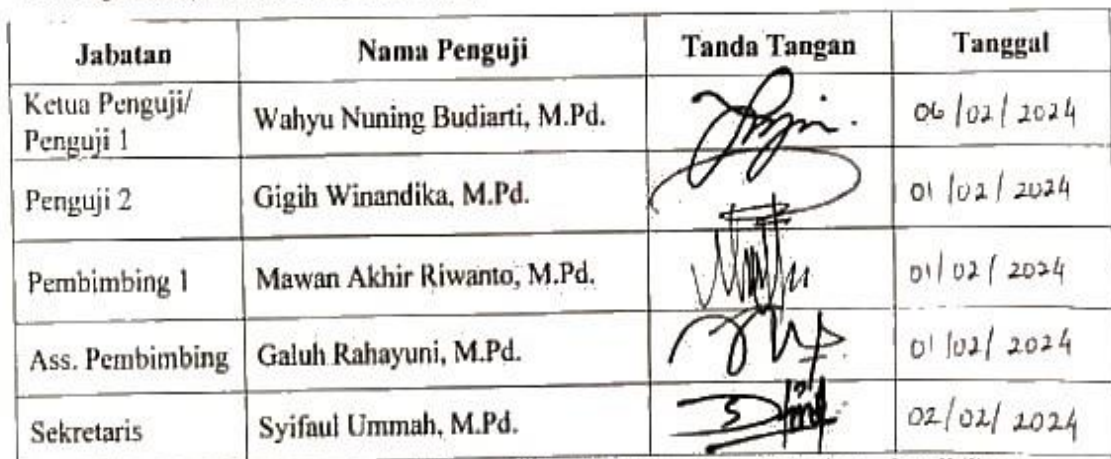 Jabatan Nama Penguji Tanda Tangan Tanggal
Ketua Penguji/
Penguji 1 Wahyu Nuning Budiarti, M.Pd. 06/02/2024
Penguji 2 Gigih Winandika, M.Pd. 01/02/2024
Pembimbing 1 Mawan Akhir Riwanto, M.Pd. 01/02/2024
Ass. Pembimbing Galuh Rahayuni, M.Pd. 01/02/2024
Sekretaris Syifaul Ummah, M.Pd. 02/02/2024